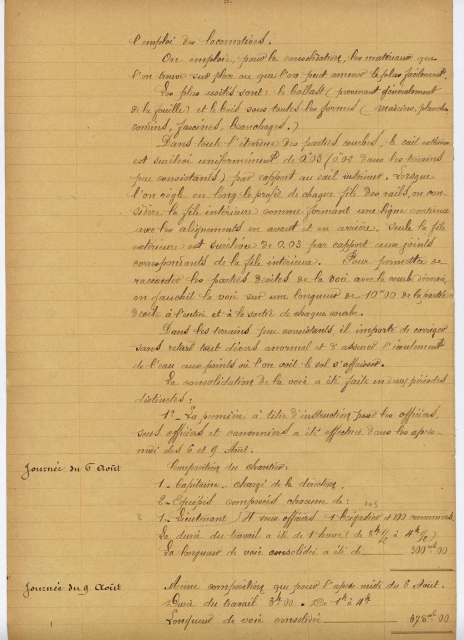 l'emploi des locomotives.
On emploie, pour la consolidation, les matériaux que
l'on trouve sur place ou que l'on peut amener le plus facilement.
Les plus usités sont : le ballast (provenant généralement
de la fouille) et le bois sous toutes les formes (madriers, planches
fascines, branchages.)
Dans toute l'étendue des parties courbes, le rail extérieur
est surélevé uniformément de 0.03 (dans les terrains
peu consistants) par rapport au rail intérieur. Lorsque
l'on règle en long le profil de chaque file des rails, on con-
sidère la file intérieure comme formant une ligne continue
avec les alignements en avant et en arrière, seule la file
extérieure est surélevée de 0.03 par rapport aux points
correspondants de la file intérieure. Pour permettre de
raccorder les parties droites de la voie avec la courbe
on gauchit la voie sur une longueur de 10m00 de la partie
droite à l'entrée et à la sortie de chaque courbe.
Dans les terrains peu consistants, il importe de corriger
sans retard tout dévers anormal et d'assurer l'écoulement
de l'eau aux points où l'on voit le sol s'affaisser.
La consolidation de la voie a été faite en deux périodes
distinctes :
1° - La première à titre d'instruction pour les officiers,
sous officiers et canonniers a été effectuée dans les après-
midi des 6 et 9 Août.
Journée du 6 Août
Composition du chantier.
1 - Capitaine chargé de la direction.
2 - Equipes composées chacune de :
1 - Lieutenant, 4 sous officiers 1 Brigadier et canonniers.
La durée du travail a été de
La longueur de voie consolidée a été de 300m00
Journée du 9 Août
Même composition que pour l'après midi du 6 Août.
Durée du travail : 3h00
Longueur de voie consolidée 675m00